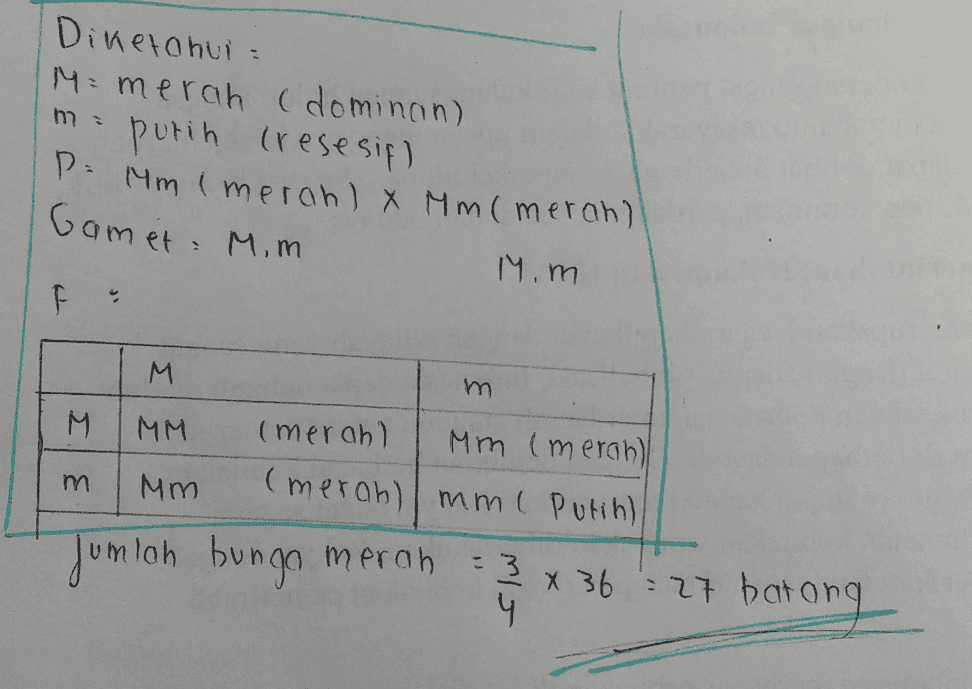 Diketahui =
M = merah (dominan)
m = putih (resesif)
P = Mm (merah) x Mm (merah)
Gamet = M, m M, m
F =
M m
M MM (merah) Mm (merah)
m Mm (merah) mm (Putih)
Jumlah bunga merah = 3/4 x 36 = 27 batang